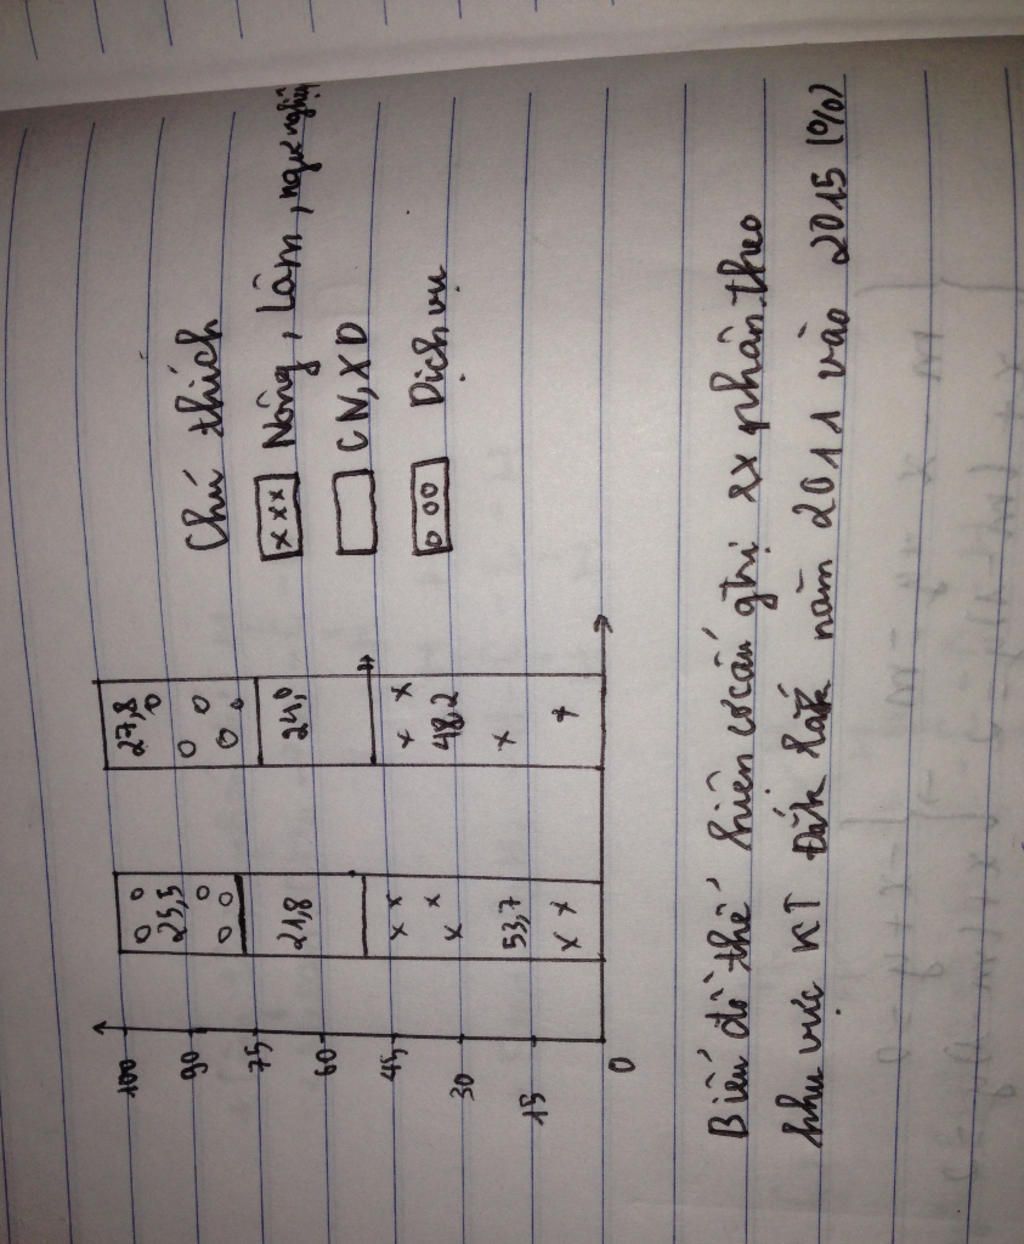 100
90
75
60
45
30
15
0
25,5
21,8
53,7
27,8
24,0
48,2
Chú thích
xxx Nông, lâm, ngư nghiệp
CN, XD
000 Dịch vụ
Biểu đồ thể hiện cơ cấu giá trị sx phân theo
khu vực KT Đắk Lắk năm 2011 vào 2015 (%)